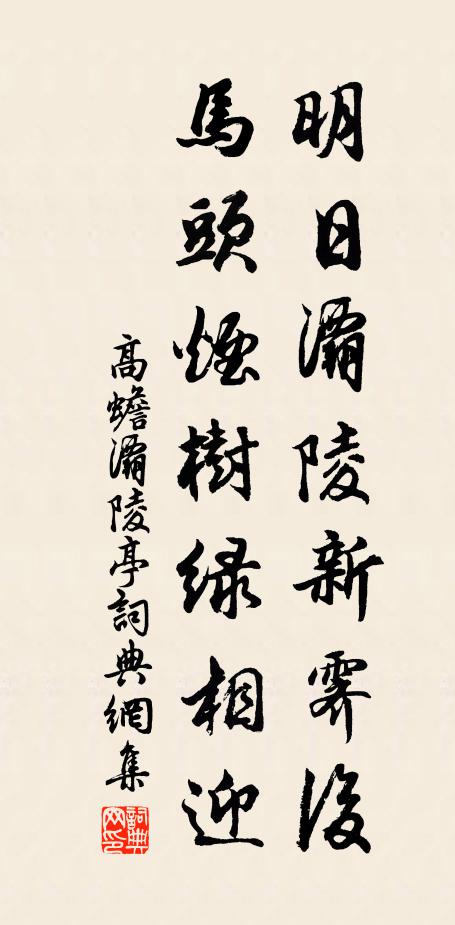 明日灞陵新霽後
馬頭煙樹緑相迎
高蟾灞陵亭詞典網集
詞典網印